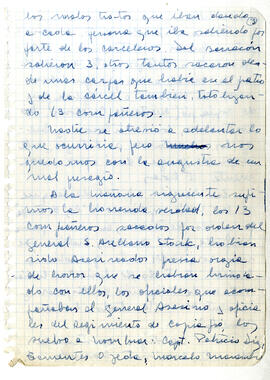 los malos tratos que iban dando
a cada persona que iba saliendo por
parte de los carceleros. Del
salieron 3, otros tantos sacaron de
de unas carpas que había en el patio
y de la cárcel tambien, totalizan
do 13 compañeros.
Nadie se atrevio a adelantar lo
que ocurriria, pero nos
quedamos con la angustia de un
mal presagio.
A la mañana siguiente supi
mos la horrenda verdad, los 13
compañeros sacados por orden del
general S. Arellano Stark, habian
sido asesinados previa orgia
de horror que se habian brinda
do con ellos, los oficiales que acom
pañaban al General Asesino y oficia
les del regimiento de Copiapó, los
vuelvo a nombrar: Capt. Patricio Diaz
Ojeda, Marcelo